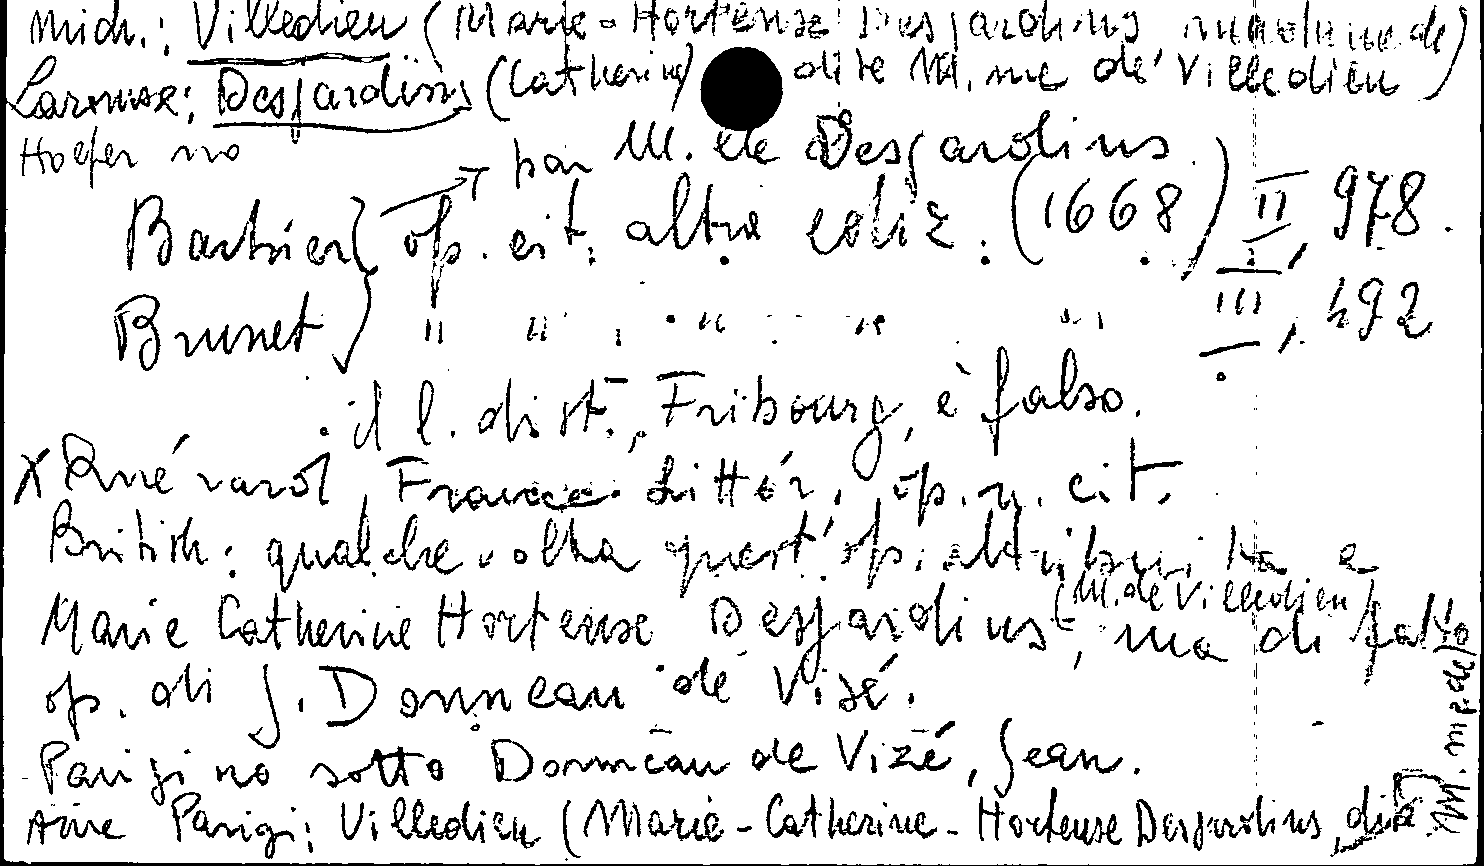 Mich.: Villedieu (Marie-Hortense Desjardins madame de)
Larousse: Desjardins (Catherine) dite M.me de Villedieu
Hoefer no
par M. de Desjardins
Barbier op. cit. altra ediz. (1668) II, 978.
Brunet " " " " " III, 492
il l. di st., Fribourg, è falso.
X Quérard, France Littér. op. n. cit.
British: qualche volta quest'op. attribuita a
Marie Catherine Hortense Desjardins (M. de Villedieu), ma di fatto
op. di J. Donneau de Visé.
Parigi no sotto Donneau de Vizé, Jean.
Parigi: Villedieu (Marie-Catherine-Hortense Desjardins, dia